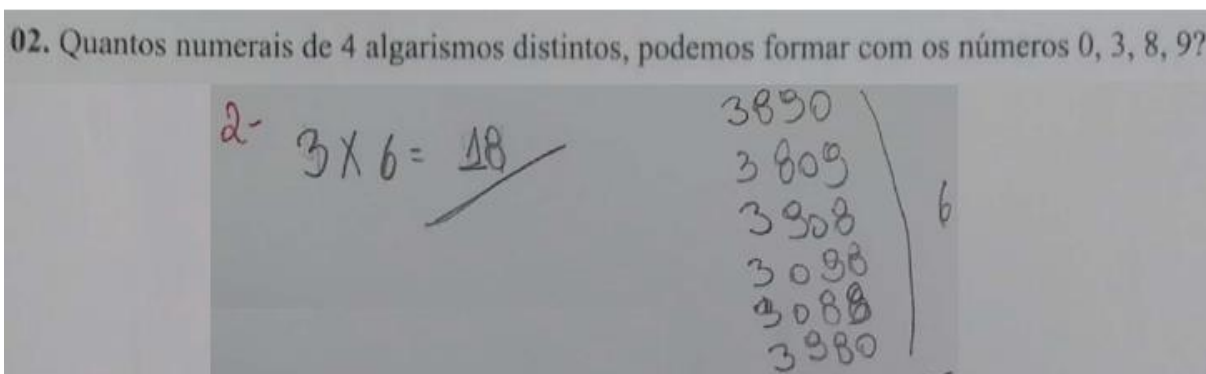 02. Quantos numerais de 4 algarismos distintos, podemos formar com os números 0, 3, 8, 9?
2- 3 X 6 = 18
3890
3809
3908
3098
3088
3980
6